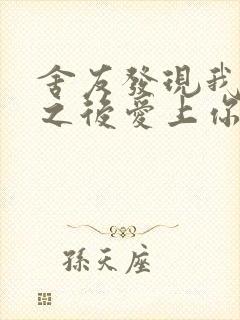 舍友發現我
之後愛上你
孫天座